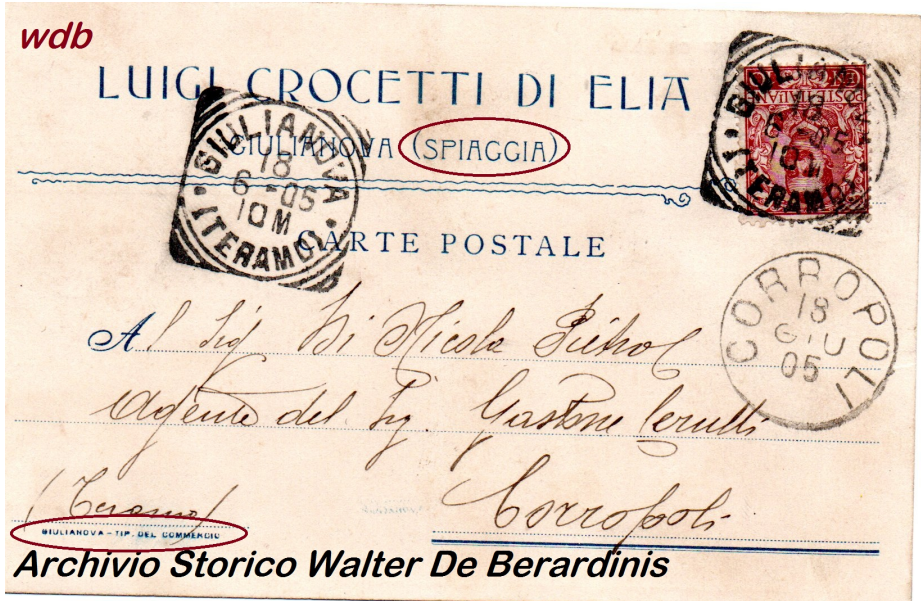 wdb
LUIGI CROCETTI DI ELIA
GIULIANOVA (SPIAGGIA)
GIULIANOVA
18
6 - 05
10 M
(TERAMO)
GIULIANOVA
18
6 - 05
10 M
(TERAMO)
POSTE ITALIANE
CARTE POSTALE
CORROPOLI
18
GIU
05
Al Sig Di Nicola Pietro
Agente del Sig. Gastone Cerulli
(Teramo) Corropoli
GIULIANOVA - TIP. DEL COMMERCIO
Archivio Storico Walter De Berardinis